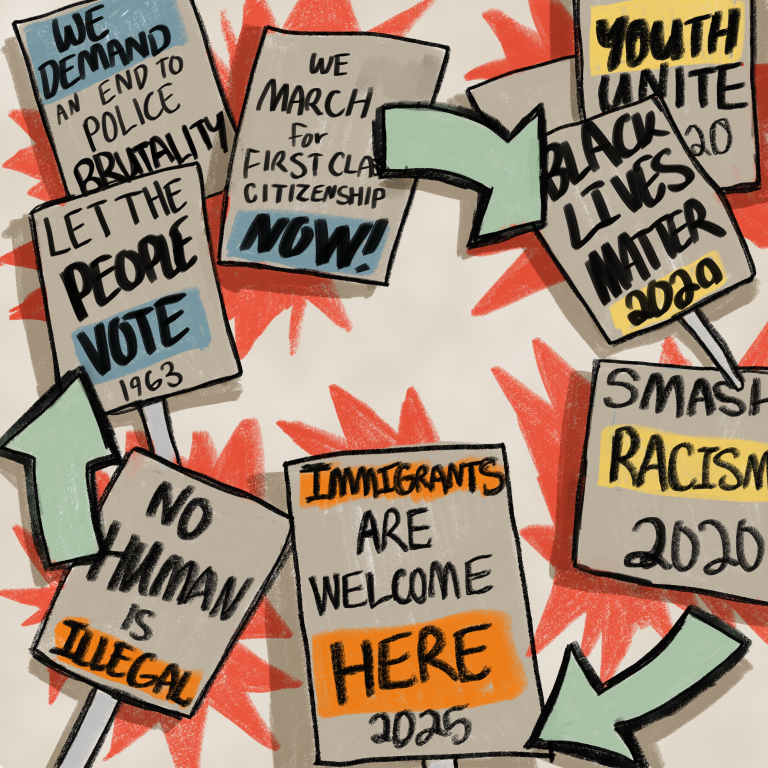 WE
DEMAND
AN END TO
POLICE
BRUTALITY
LET THE
PEOPLE
VOTE
1963
WE
MARCH
for
FIRST CLA
CITIZENSHIP
NOW!
YOUTH
UNITE
20
BLACK
LIVES
MATTER
2020
SMASH
RACISM
2020
IMMIGRANTS
ARE
WELCOME
HERE
2025
NO
HUMAN
IS
ILLEGAL